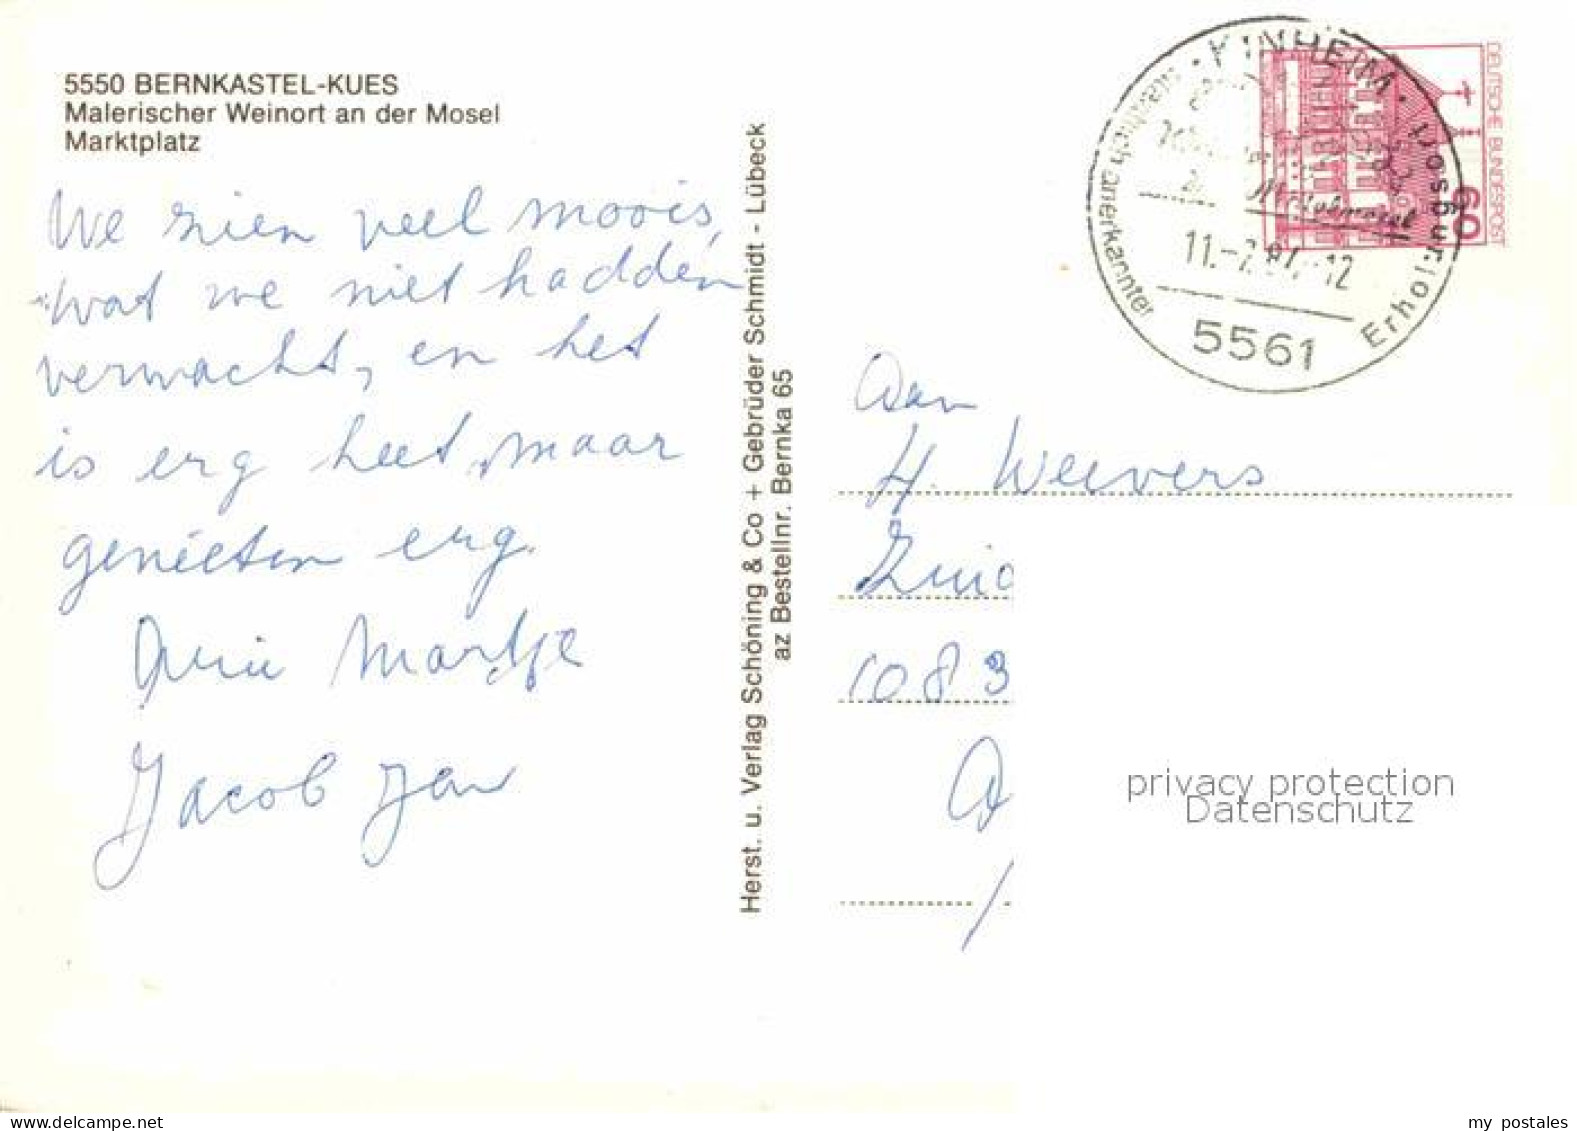 5550 BERNKASTEL-KUES
Malerischer Weinort an der Mosel
Marktplatz
We zien veel moois,
wat we niet hadden
verwacht, en het
is erg heet, maar
genieten erg.
Martje
Jacob Jan
Herst. u. Verlag Schöning & Co + Gebrüder Schmidt - Lübeck
az Bestellnr. Bernka 65
KINHEIM
staatlich anerkannter
Erhol
5561
DEUTSCHE BUNDESPOST
60
Aan
H. Weevers
Zuid
1083
privacy protection
Datenschutz
www.delcampe.net
my_postales